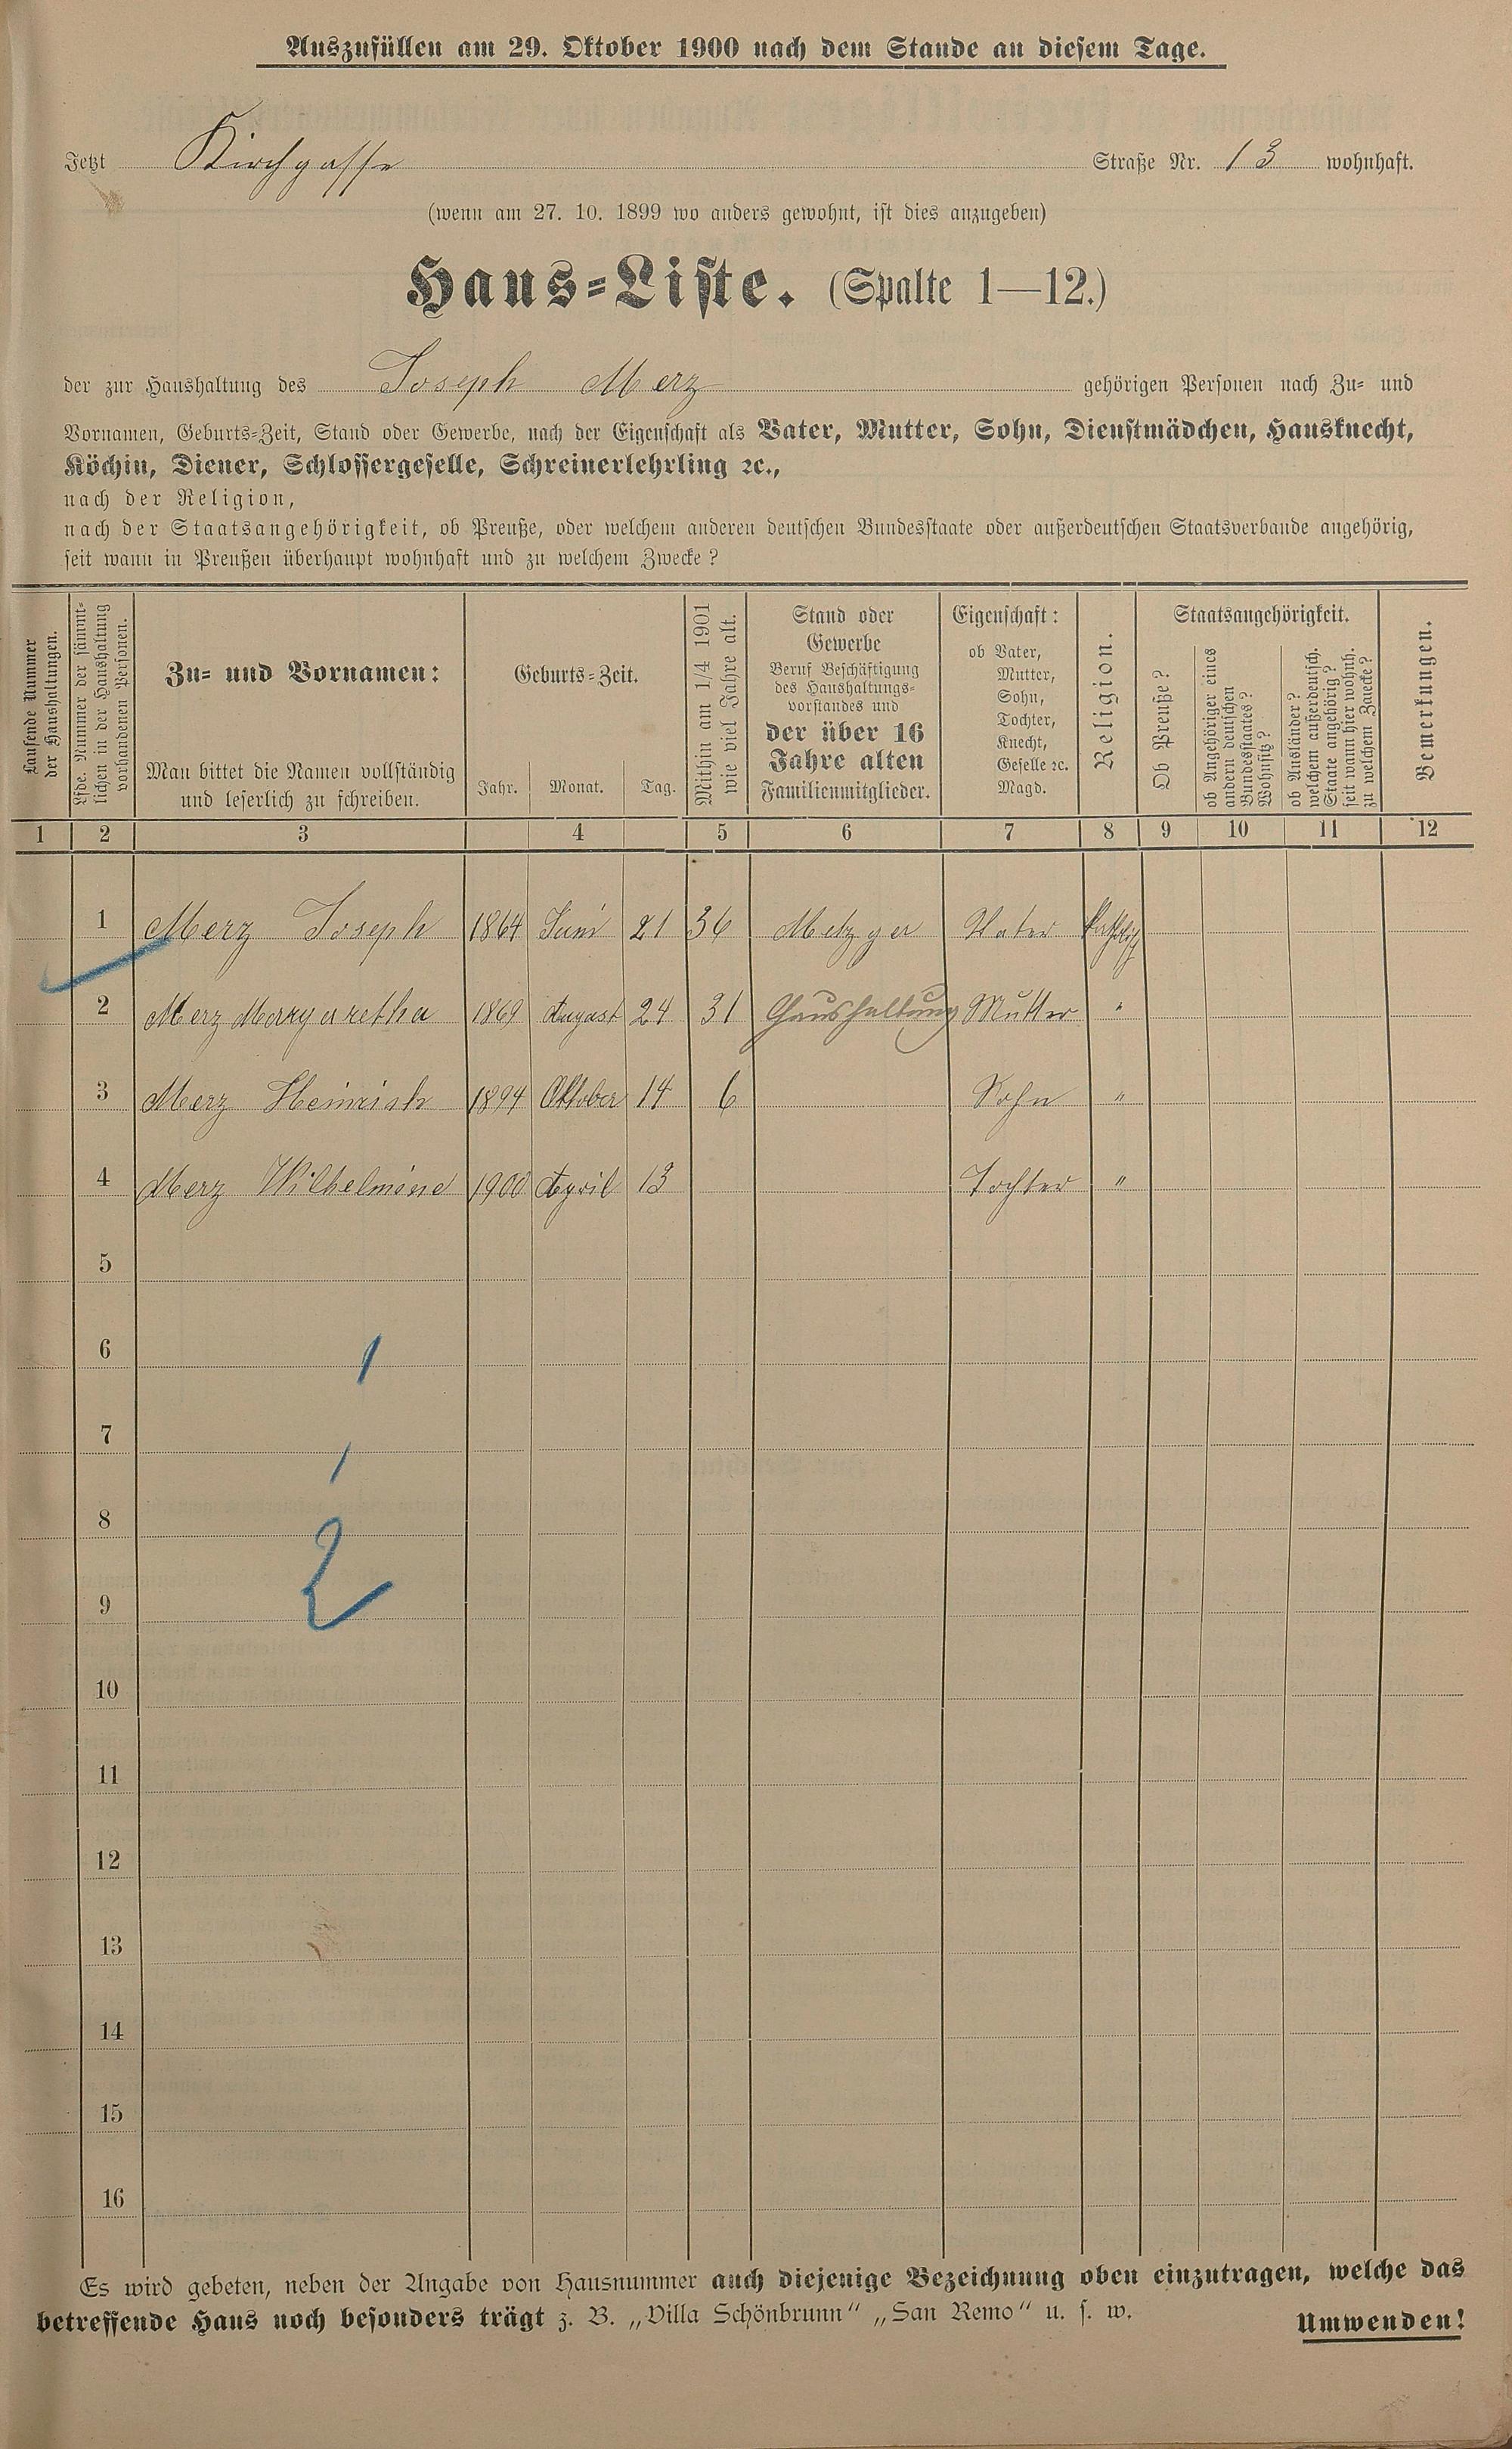 Auszufüllen am 29. Oktober 1900 nach dem Stande an diesem Tage.
Jetzt Kirchgasse Straße Nr. 13 wohnhaft.
(wenn am 27. 10. 1899 wo anders gewohnt, ist dies anzugeben)
Haus-Liste. (Spalte 1—12.)
der zur Haushaltung des Joseph Merz gehörigen Personen nach Zu- und
Vornamen, Geburts-Zeit, Stand oder Gewerbe, nach der Eigenschaft als Vater, Mutter, Sohn, Dienstmädchen, Hausknecht,
Köchin, Diener, Schlossergeselle, Schreinerlehrling ꝛc.,
nach der Religion,
nach der Staatsangehörigkeit, ob Preuße, oder welchem anderen deutschen Bundesstaate oder außerdeutschen Staatsverbande angehörig,
seit wann in Preußen überhaupt wohnhaft und zu welchem Zwecke?
Laufende Nummer
der Haushaltungen.
Lfde. Nummer der sämmt-
lichen in der Haushaltung
vorhandenen Personen.
Zu- und Vornamen:
Man bittet die Namen vollständig
und leserlich zu schreiben.
Geburts-Zeit.
Jahr. Monat. Tag.
Mithin am 1/4 1901
wie viel Jahre alt.
Stand oder
Gewerbe
Beruf Beschäftigung
des Haushaltungs-
vorstandes und
der über 16
Jahre alten
Familienmitglieder.
Eigenschaft:
ob Vater,
Mutter,
Sohn,
Tochter,
Knecht,
Geselle ꝛc.
Magd.
Religion.
Staatsangehörigkeit.
Ob Preuße?
ob Angehöriger eines
andern deutschen
Bundesstaates?
Wohnsitz?
ob Ausländer?
welchem außerdeutsch.
Staate angehörig?
seit wann hier wohnh.
zu welchem Zwecke?
Bemerkungen.
1 2 3 4 5 6 7 8 9 10 11 12
1 Merz Joseph 1864 Juni 21 36 Metzger Vater katholisch
2 Merz Margaretha 1869 August 24 31 Haushaltung Mutter "
3 Merz Heinrich 1894 Oktober 14 6 Sohn "
4 Merz Wilhelmine 1900 April 13 Tochter "
5
6 1
7 1
8
2
9
10
11
12
13
14
15
16
Es wird gebeten, neben der Angabe von Hausnummer auch diejenige Bezeichnung oben einzutragen, welche das
betreffende Haus noch besonders trägt z. B. „Villa Schönbrunn“ „San Remo“ u. s. w.
Umwenden!